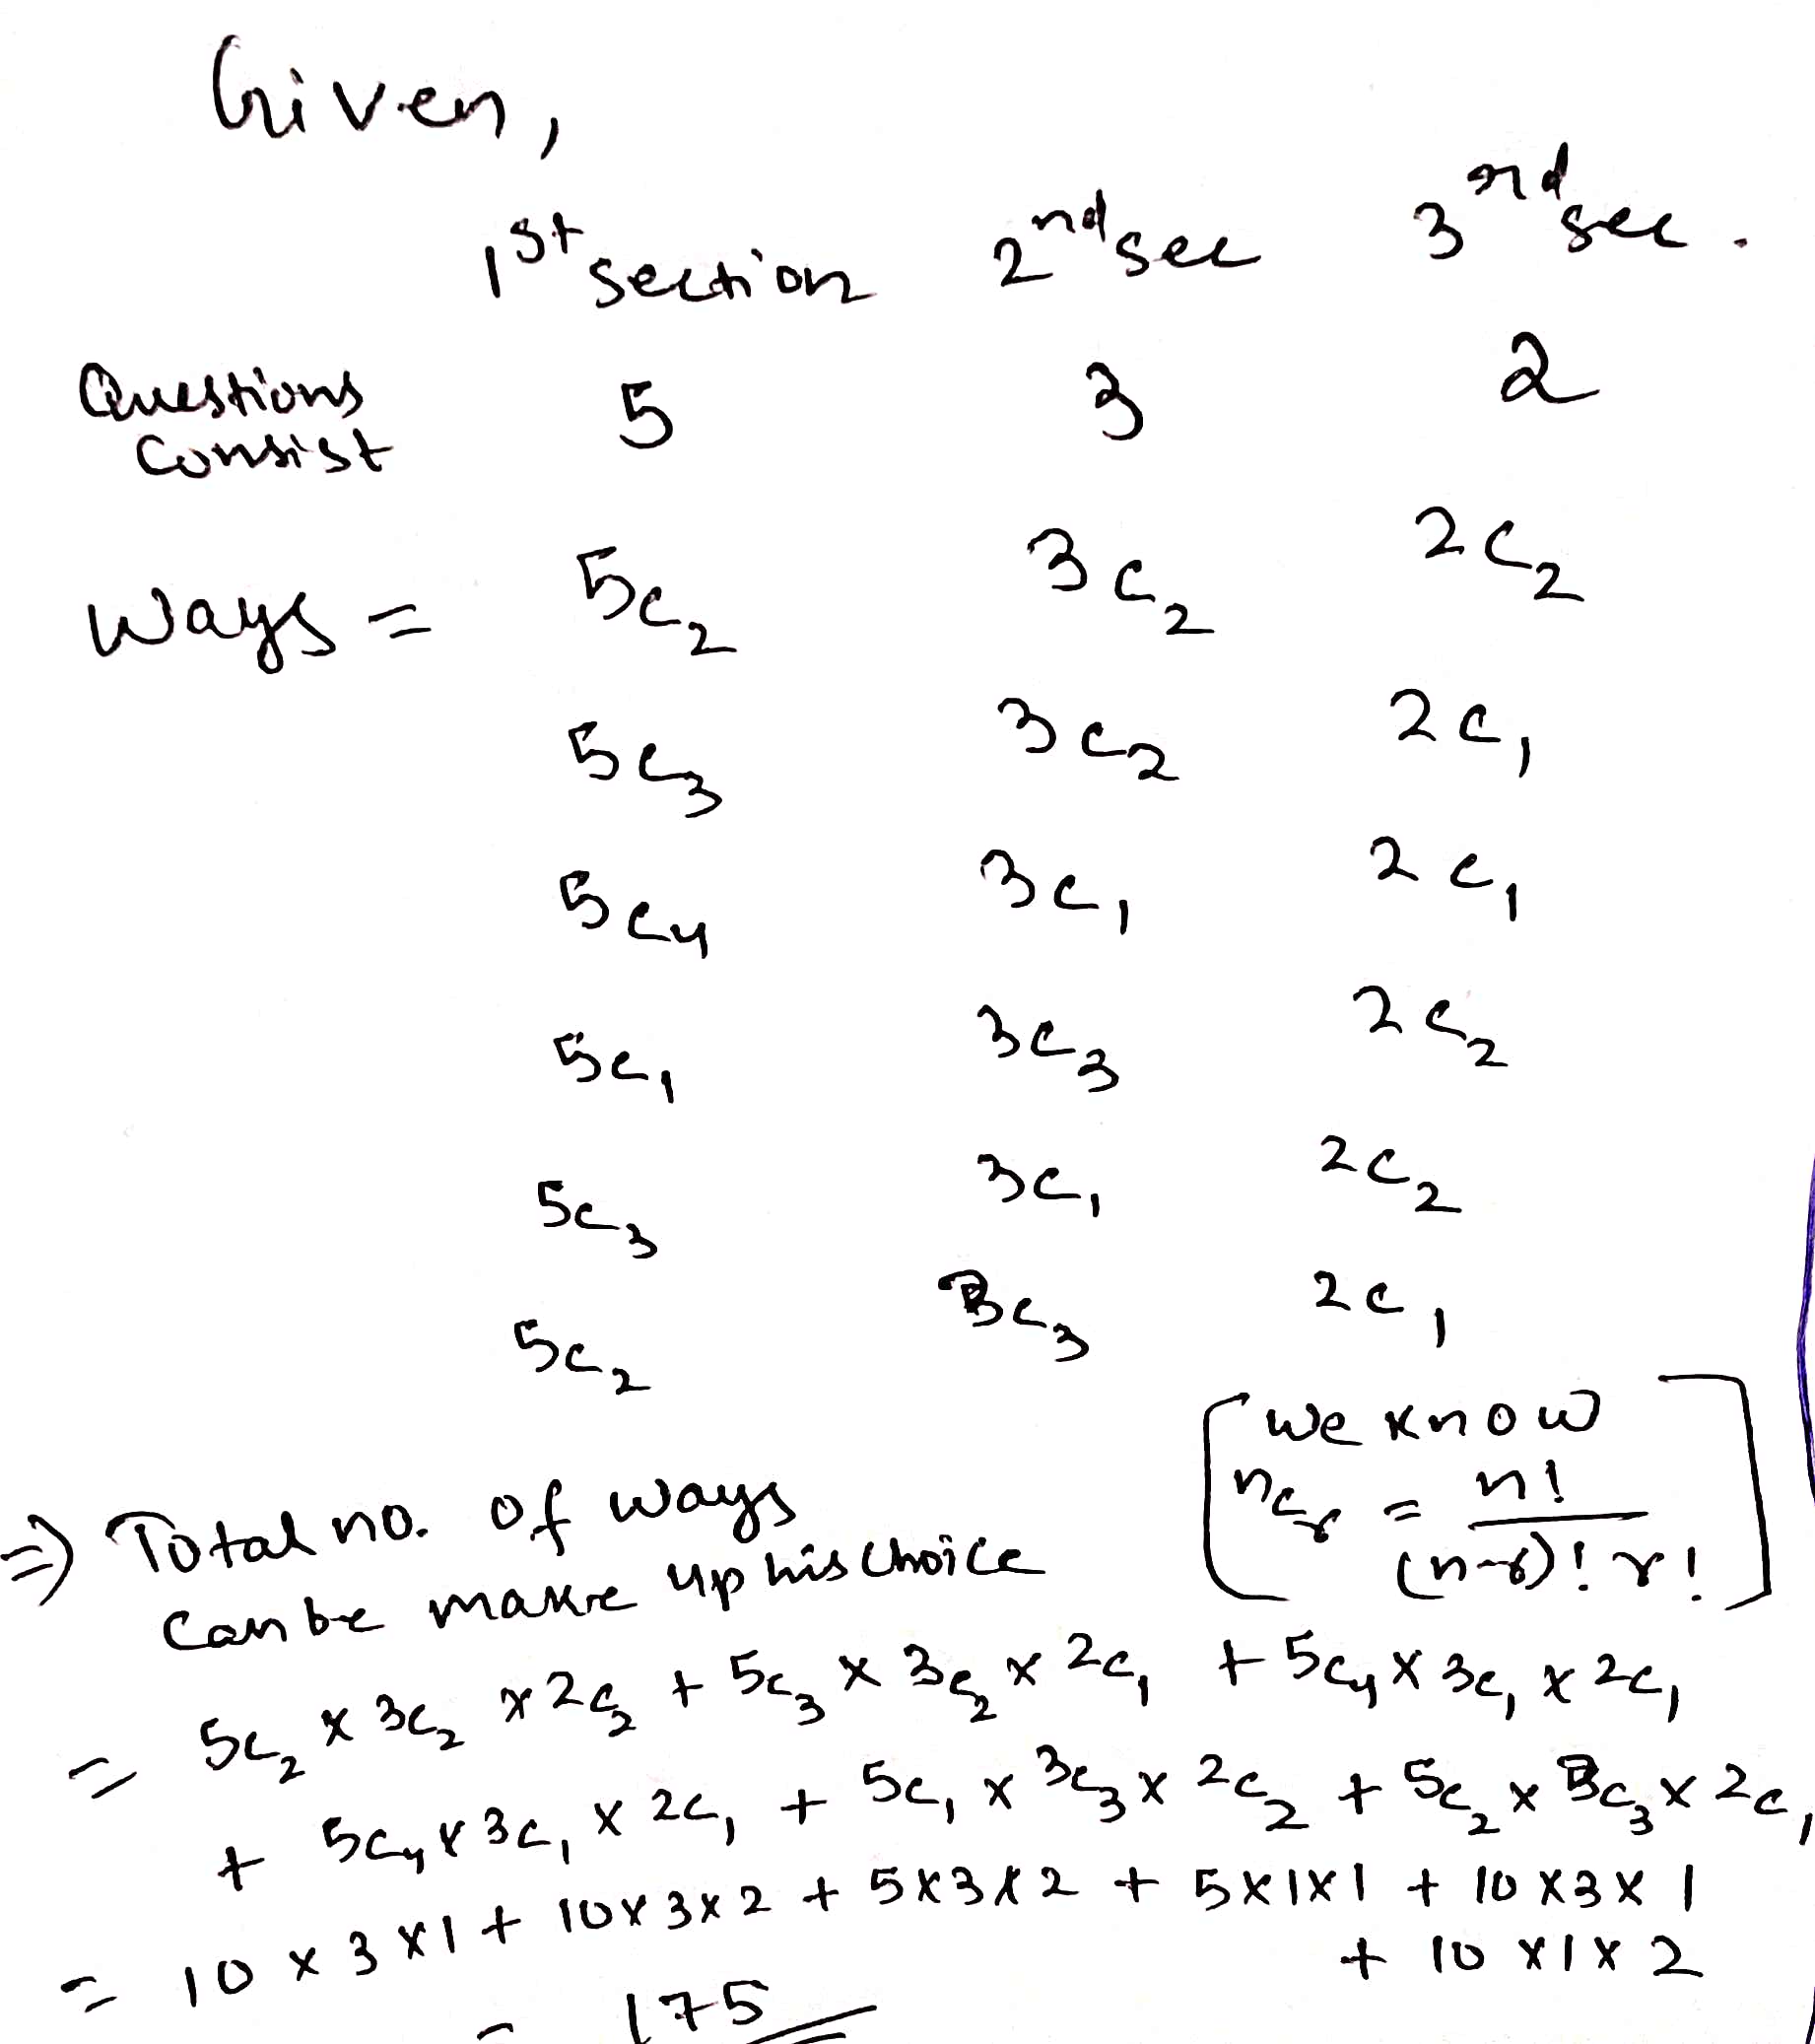 Given,
1st section 2nd sec 3rd sec.
Questions consist 5 3 2
Ways = 5c2 3c2 2c2
5c3 3c2 2c1
5c4 3c1 2c1
5c1 3c3 2c2
5c3 3c1 2c2
5c2 3c3 2c1
[we know
ncr = n! / (n-r)! r!]
⇒ Total no. of ways
can be make up his choice
= 5c2 × 3c2 × 2c2 + 5c3 × 3c2 × 2c1 + 5c4 × 3c1 × 2c1
+ 5c4 × 3c1 × 2c1 + 5c1 × 3c3 × 2c2 + 5c2 × 3c3 × 2c1
= 10 × 3 × 1 + 10 × 3 × 2 + 5×3×2 + 5×1×1 + 10×3×1
+ 10×1×2
= 175